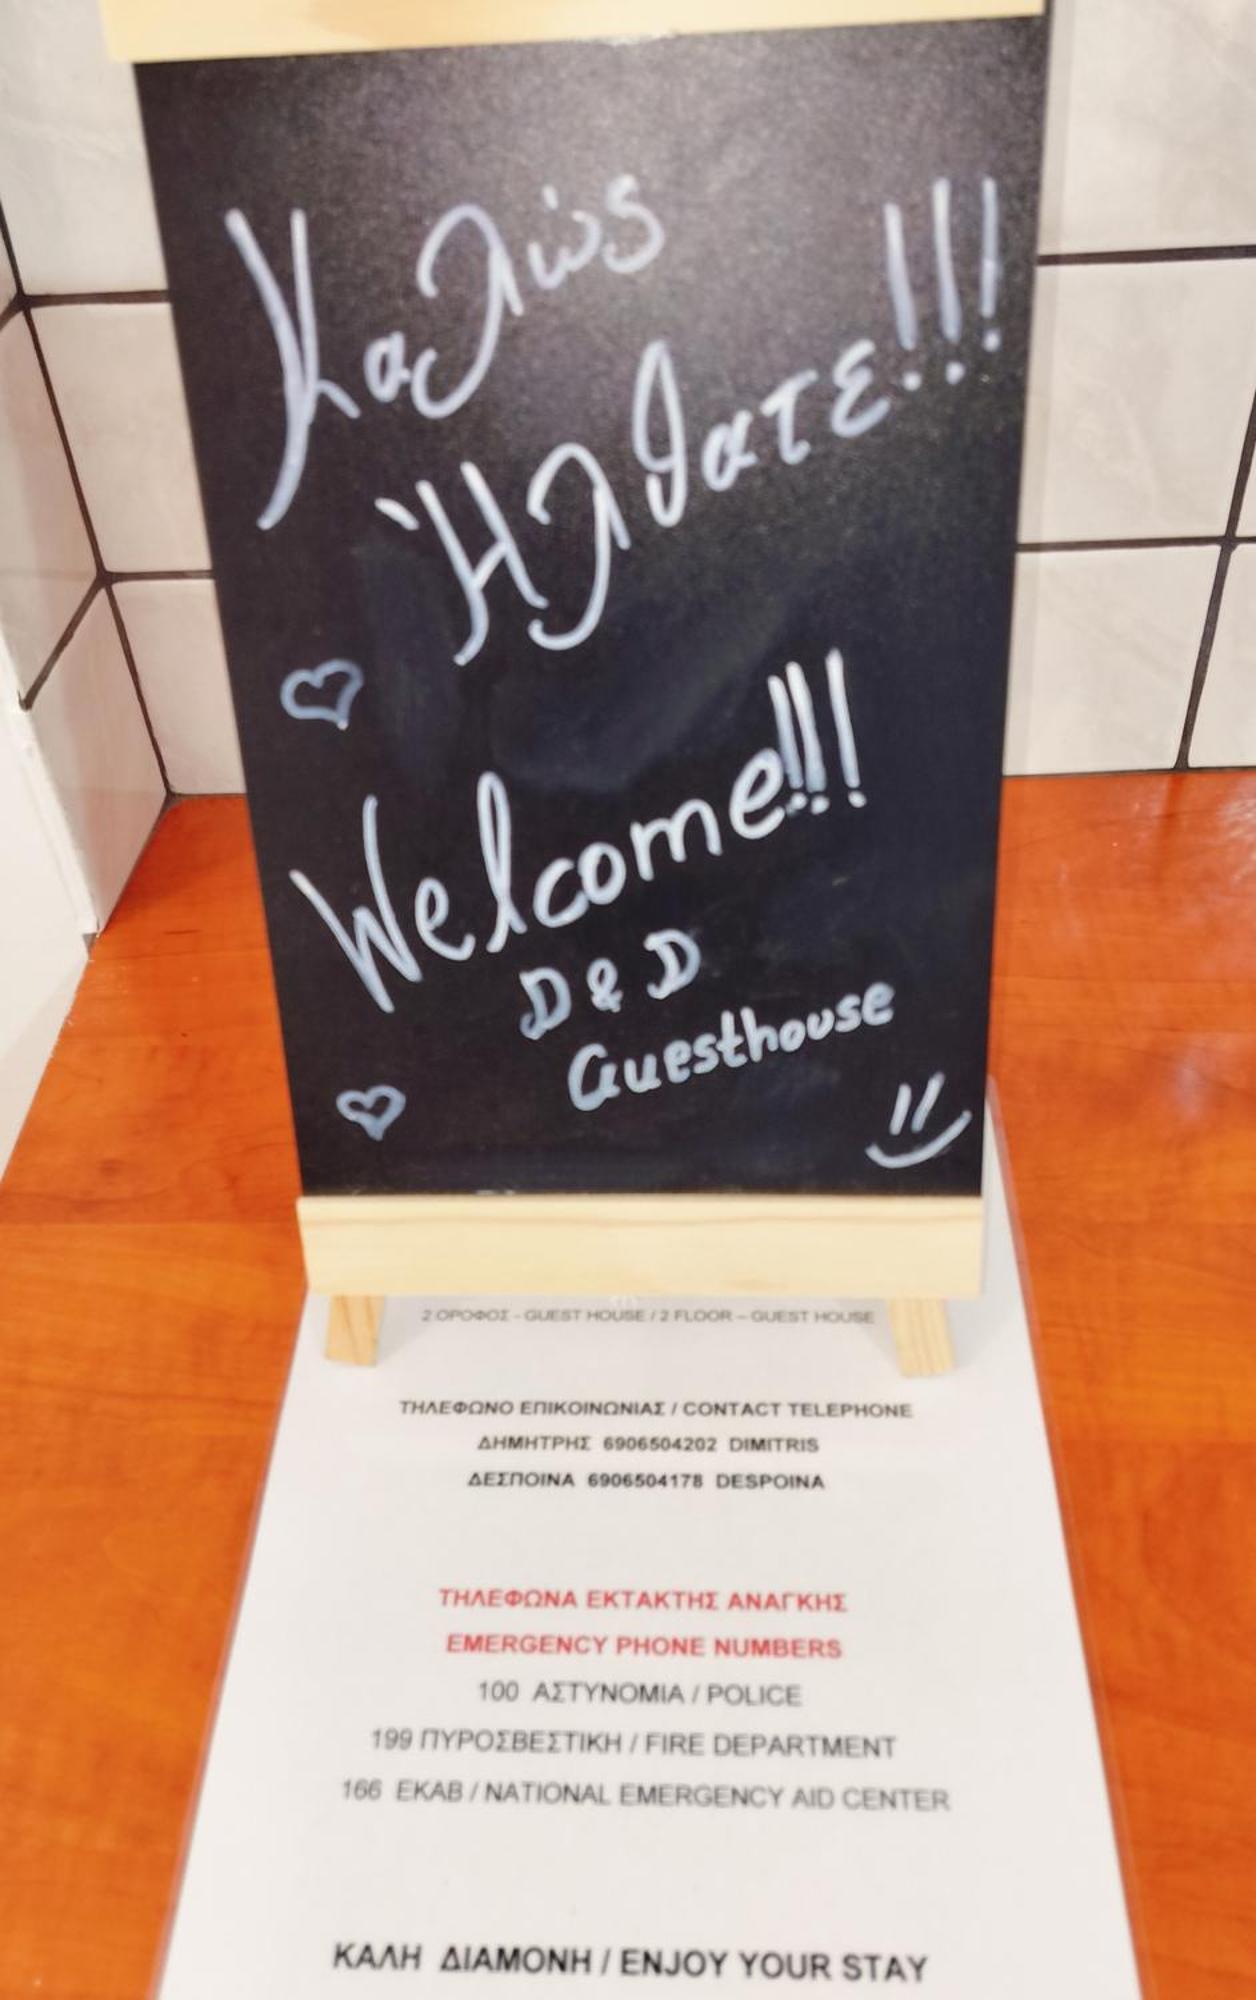 Καλώς
Ήλθατε!!!
Welcome!!!
D & D
Guesthouse
2 ΟΡΟΦΟΣ - GUEST HOUSE / 2 FLOOR – GUEST HOUSE
ΤΗΛΕΦΩΝΟ ΕΠΙΚΟΙΝΩΝΙΑΣ / CONTACT TELEPHONE
ΔΗΜΗΤΡΗΣ 6906504202 DIMITRIS
ΔΕΣΠΟΙΝΑ 6906504178 DESPOINA
ΤΗΛΕΦΩΝΑ ΕΚΤΑΚΤΗΣ ΑΝΑΓΚΗΣ
EMERGENCY PHONE NUMBERS
100 ΑΣΤΥΝΟΜΙΑ / POLICE
199 ΠΥΡΟΣΒΕΣΤΙΚΗ / FIRE DEPARTMENT
166 ΕΚΑΒ / NATIONAL EMERGENCY AID CENTER
ΚΑΛΗ ΔΙΑΜΟΝΗ / ENJOY YOUR STAY